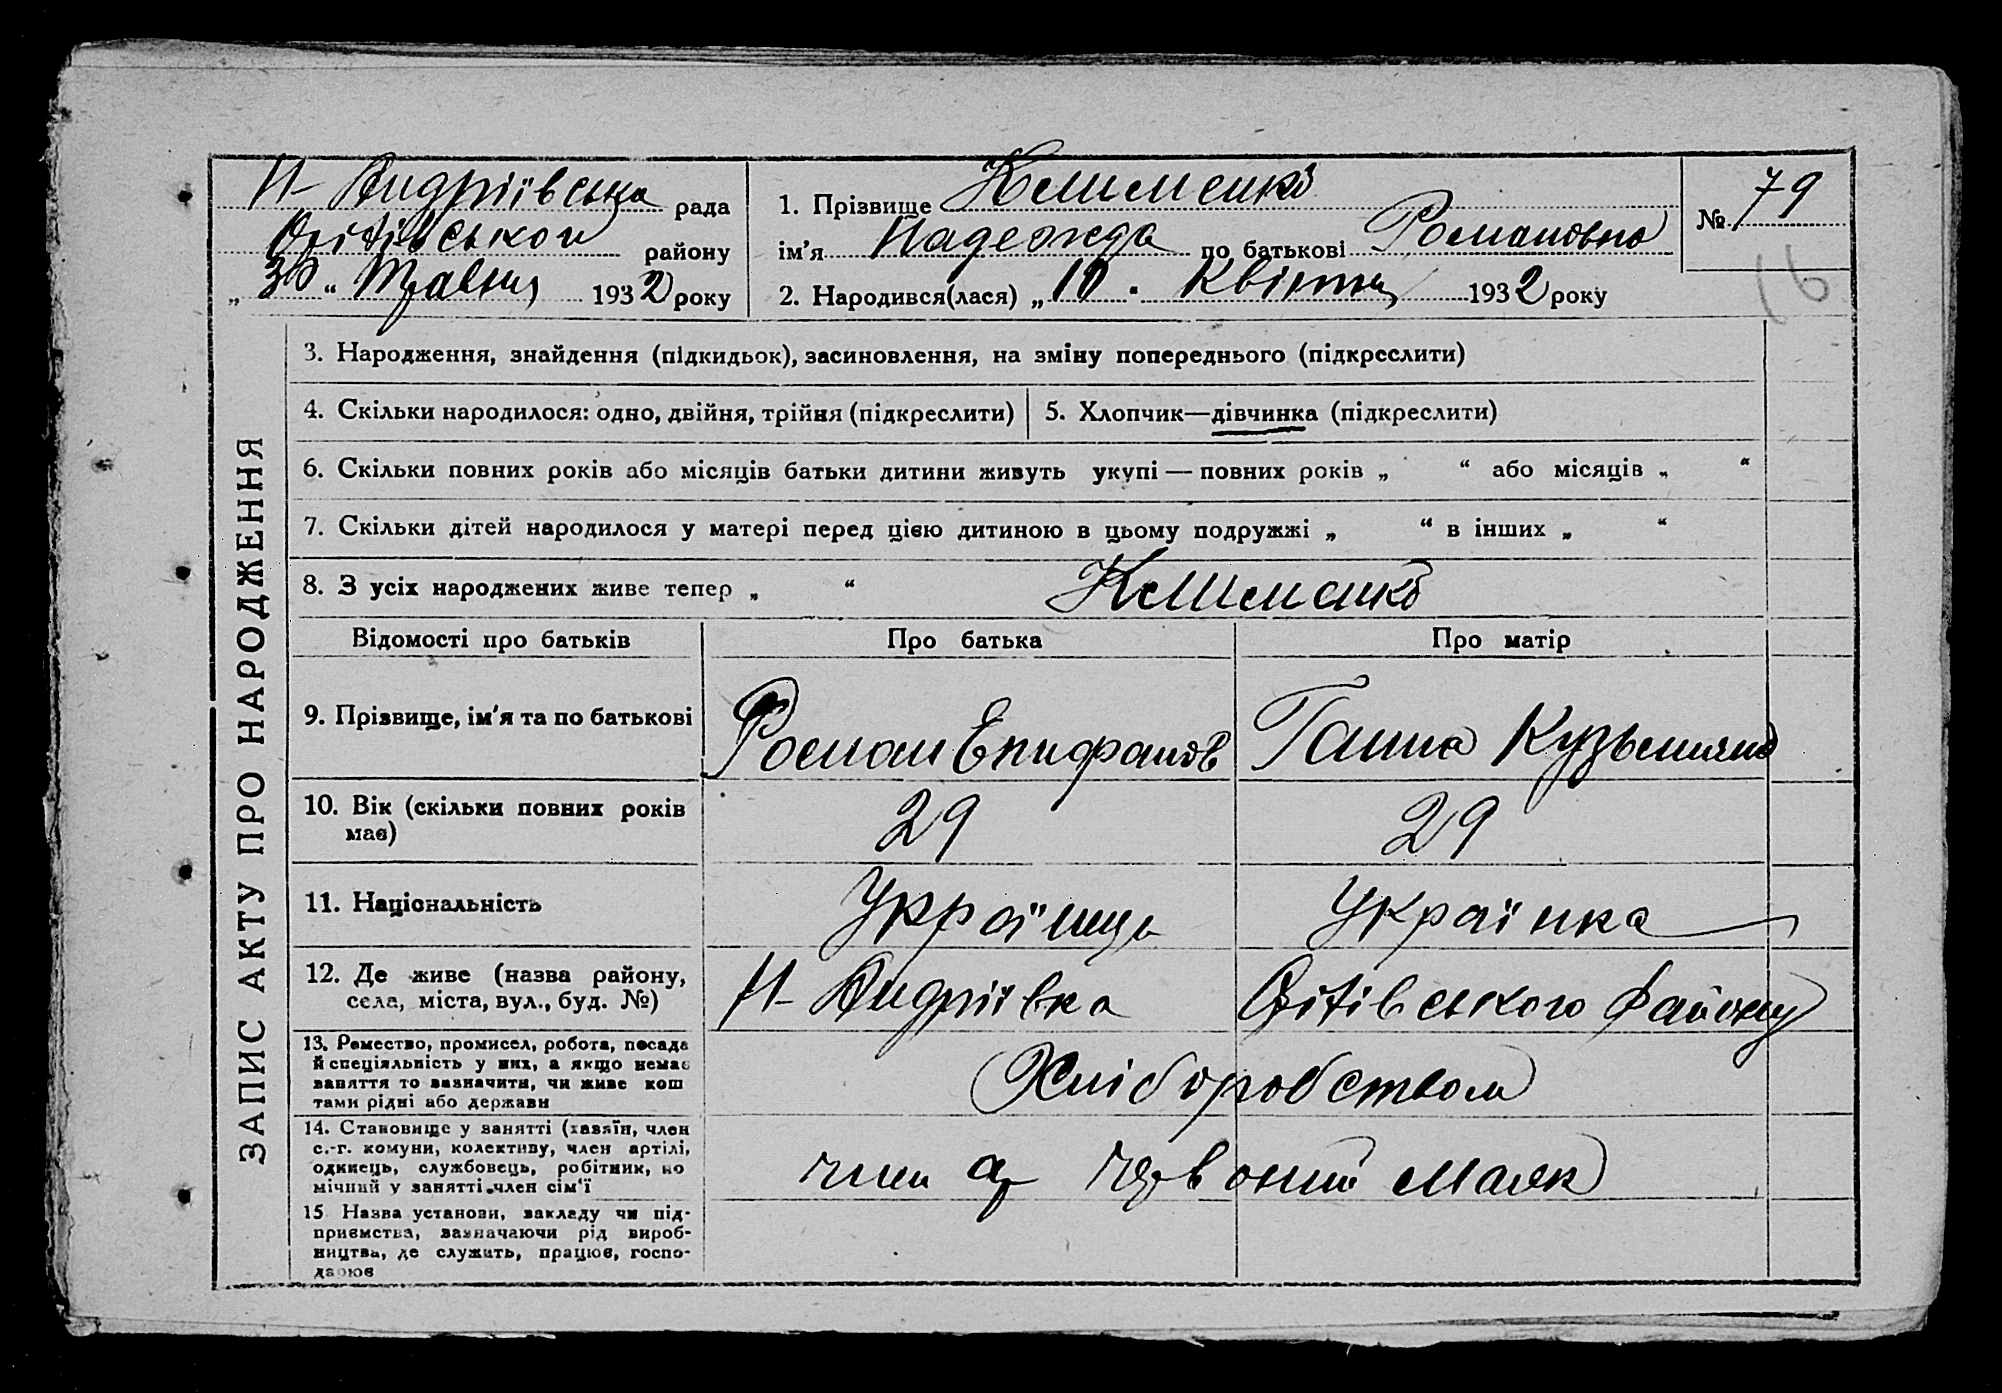 Н-Андріївська рада
Оріхівського району
„30“ Травня 1932 року
1. Прізвище Клименко
ім’я Надежда по батькові Романовна
2. Народився(лася) „10. Квітня 1932 року
№ 79
16
ЗАПИС АКТУ ПРО НАРОДЖЕННЯ
3. Народження, знайдення (підкидьок), засиновлення, на зміну попереднього (підкреслити)
4. Скільки народилося: одно, двійня, трійня (підкреслити)
5. Хлопчик—дівчинка (підкреслити)
6. Скільки повних років або місяців батьки дитини живуть укупі — повних років „ “ або місяців „ “
7. Скільки дітей народилося у матері перед цією дитиною в цьому подружжі „ “ в інших „ “
8. З усіх народжених живе тепер „ “ Клименко
Відомості про батьків Про батька Про матір
9. Прізвище, ім’я та по батькові Роман Епифанов Ганна
10. Вік (скільки повних років
має) 29 29
11. Національність Українць Українка
12. Де живе (назва району,
села, міста, вул., буд. №) Н-Андріївка Оріхівського району
13. Ремество, промисел, робота, посада
й спеціяльність у них, а якщо немає
заняття то зазначити, чи живе кош
тами рідні або держави
Хліборобством
14. Становище у занятті (хазяїн, член
с.-г. комуни, колективу, член артілі,
одинець, службовець, робітник, по
мічний у занятті член сім’ї
член ар Червоний Маяк
15 Назва установи, закладу чи під-
приємства, зазначаючи рід вироб-
ництва, де служить, працює, госпо-
дарює